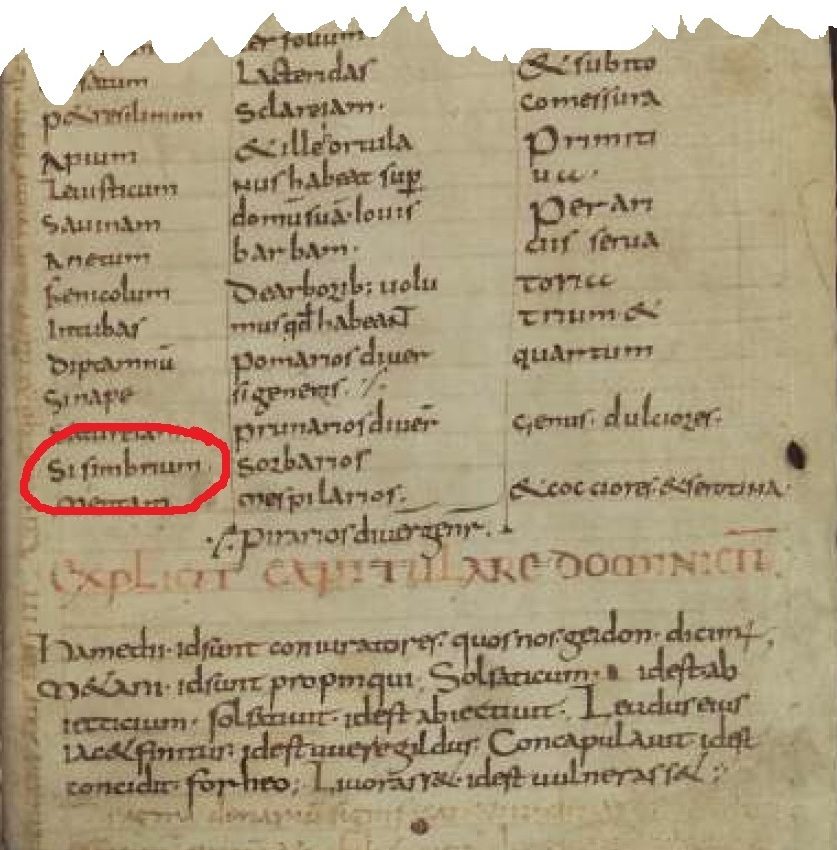 p&resilinum
Apium
Leuisticum
Sauinam
Anetum
fenicolum
Intubas
Diptamnū
Sinape
Satureiam
Sisimbrium.
Mentam
Lacteridas
Sclareiam.
& ille ortula
nus habeat sup̱
domū suā. Iouis
barbam.
De arborib; uolu
mus qđ habeant
pomarios diuer
si generis. ·/.
prunarios diuer̄
Sorbarios
mespilarios.
·/. pirarios diuer gener̄.
& subito
comessura
Primiti
ua.
Per an
cus serua
toria
trium &
quartum
Genus. dulciores.
& cocciores. & serotina.
EXPLICIT CAPITULARE DOMINICŪ
Hamedii. id sunt coniuratores. quos nos. geidon. dicim;
M&ani. id sunt propinqui. Solsaticum. id est ab
iecticium. solsatiuit. id est abiectiuit. Leudus eius
iac& finitus. id est uueregildus. Concapulauit. id est
concidit. forheo; Liuorass&. id est uulnerass&.